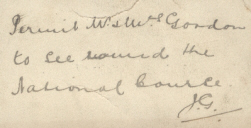 Permit Mr & Mrs Gordon
to see round the
National Cource.
J.G.